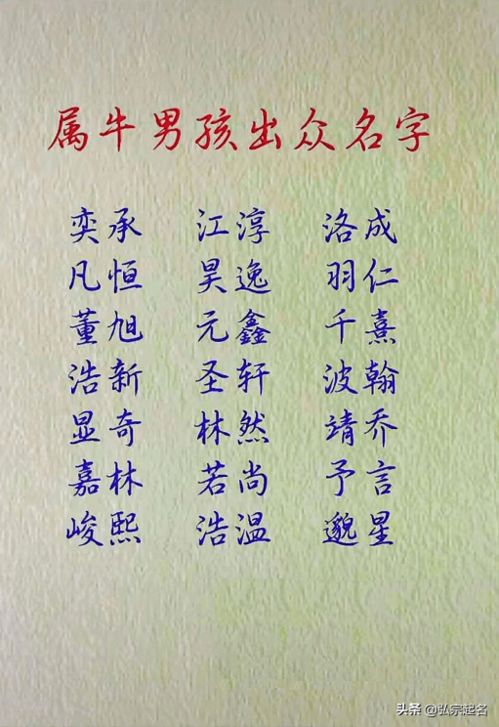 属牛男孩出众名字
奕承 江淳 洛成
凡恒 昊逸 羽仁
董旭 元鑫 千熹
浩新 圣轩 波翰
显奇 林然 靖乔
嘉林 若尚 予言
峻熙 浩温 邈星
头条 @弘宗起名